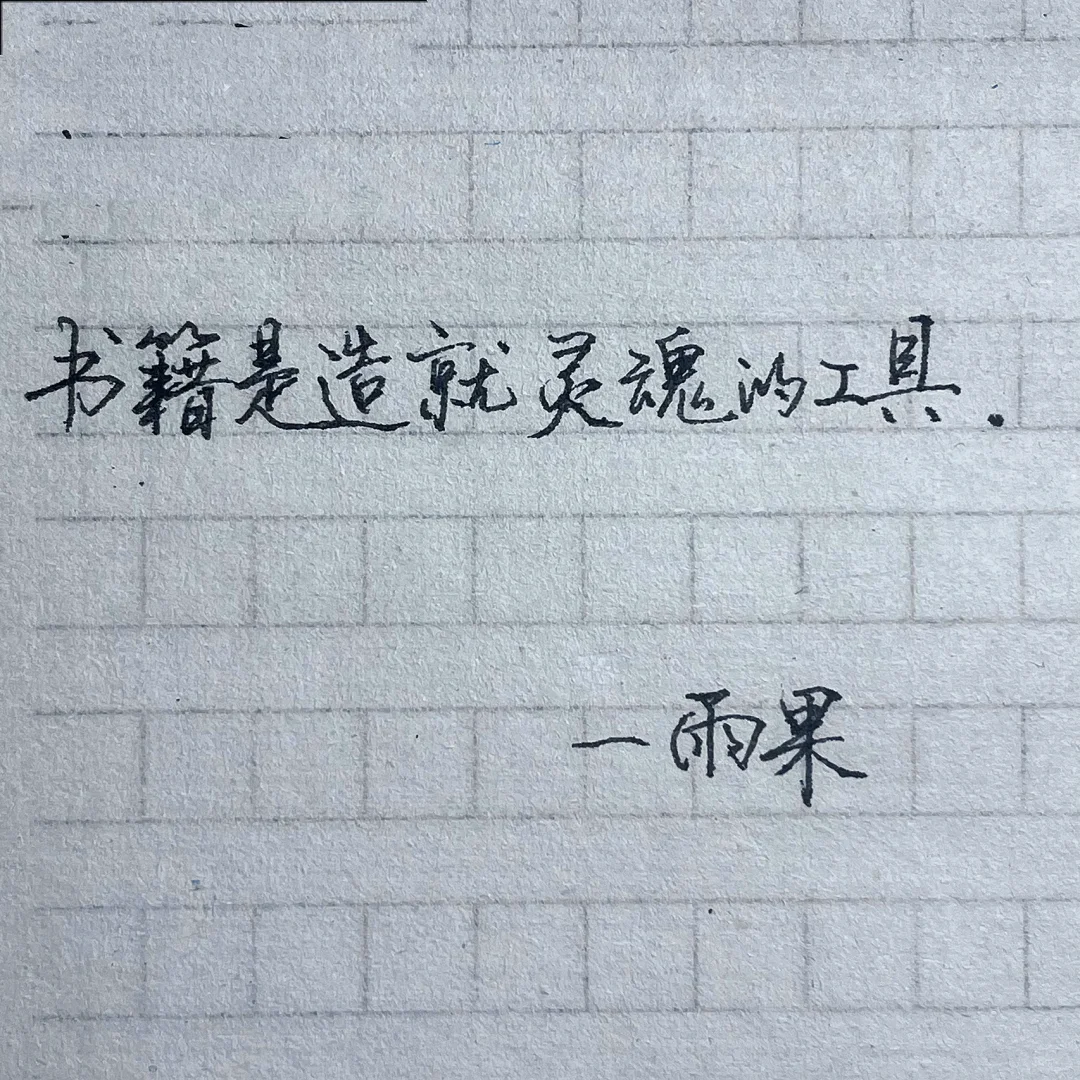 书籍是造就灵魂的工具.
—雨果